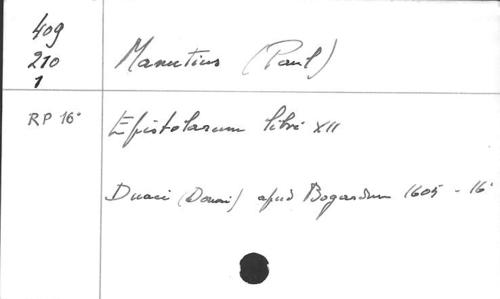 409
210
1
Manutius (Paul)
RP 16°
Epistolarum libri XII
Duaci (Douai) apud Bogardum 1605 - 16°